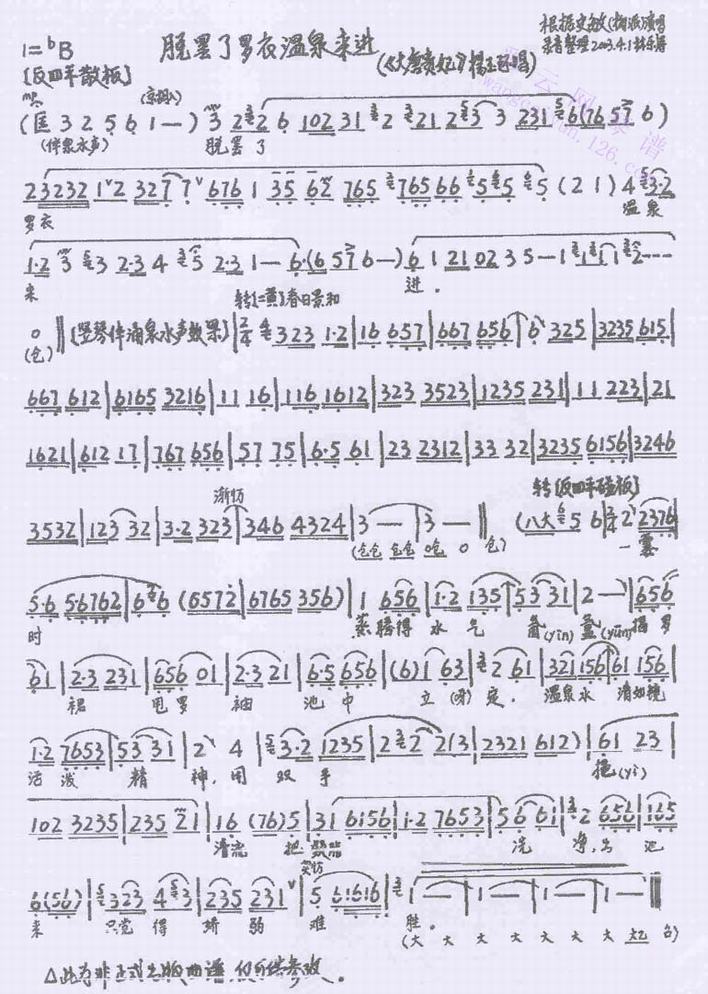 脱罢了罗衣温泉来进
(《大唐贵妃》杨玉环唱)
根据史敏(梅派)演唱
录音整理2003.4.1
1=ᵇB
[反四平散板]
(匡 3 2 5 6 1 — ) 3 2 2 6 102 31 2 212 2 3 231 6(76 57 6)
(伴泉水声) 脱罢 了
23232 1 2 327 7 676 1 35 62 765 765 66 5 5 5 (2 1) 4 3·2
罗衣 温泉
1·2 3 3 2·3 4 5 2·3 1— 6·(6 576—) 6 1 21 02 3 5—1 1 1 1 2---
来 进.
转[二黄]春日景和
0 ‖ [竖琴伴涌泉水声效果] 2/4 323 1·2|16 657|667 656|6 325|3235 615|
(仓)
667 612|6165 3216|11 16|116 1612|323 3523|1235 231|11 223|21
1621|612 17|767 656|57 75|6·5 61|23 2312|33 32|3235 6156|3246
渐切 转[反四平碰板]
3532|123 32|3·2 323|346 4324|3 —|3 —‖ (八大 5 6|2 2376|
(仓仓 仓仓 吃 0 仓) 一霎
5·6 56762|6 6 (6572|6765 356)|1 656|1·2 135|53 31|2 —|656
时 蒸腾得 水 气 氤(yīn) 氲(yūn)揭 罗
61|2·3 231|656 01|2·3 21|6·5 656|(6)1 63|2 61|321 156|61 156|
裙 甩罗 袖 池 中 立(呀)定. 温泉水 清如镜
1·2 7653|53 31|2 4|3·2 1235|2 2 2(3|2321 612)|61 23|
活 泼 精 神,用 双 手 (yi)
102 3235|235 21|16 (76)5|31 6156|1·2 7653|5 6 61|2 656|165
清流 把 洗 净,出 池
6(56)|323 4 3|235 231|5 61616|1 —|1 —|1 —|1 —‖
来 只觉 得 娇 弱 难 胜.
(大 大 大 大 大 大 大 大乙 台)
△此为非正式出版曲谱 仅可供参考.